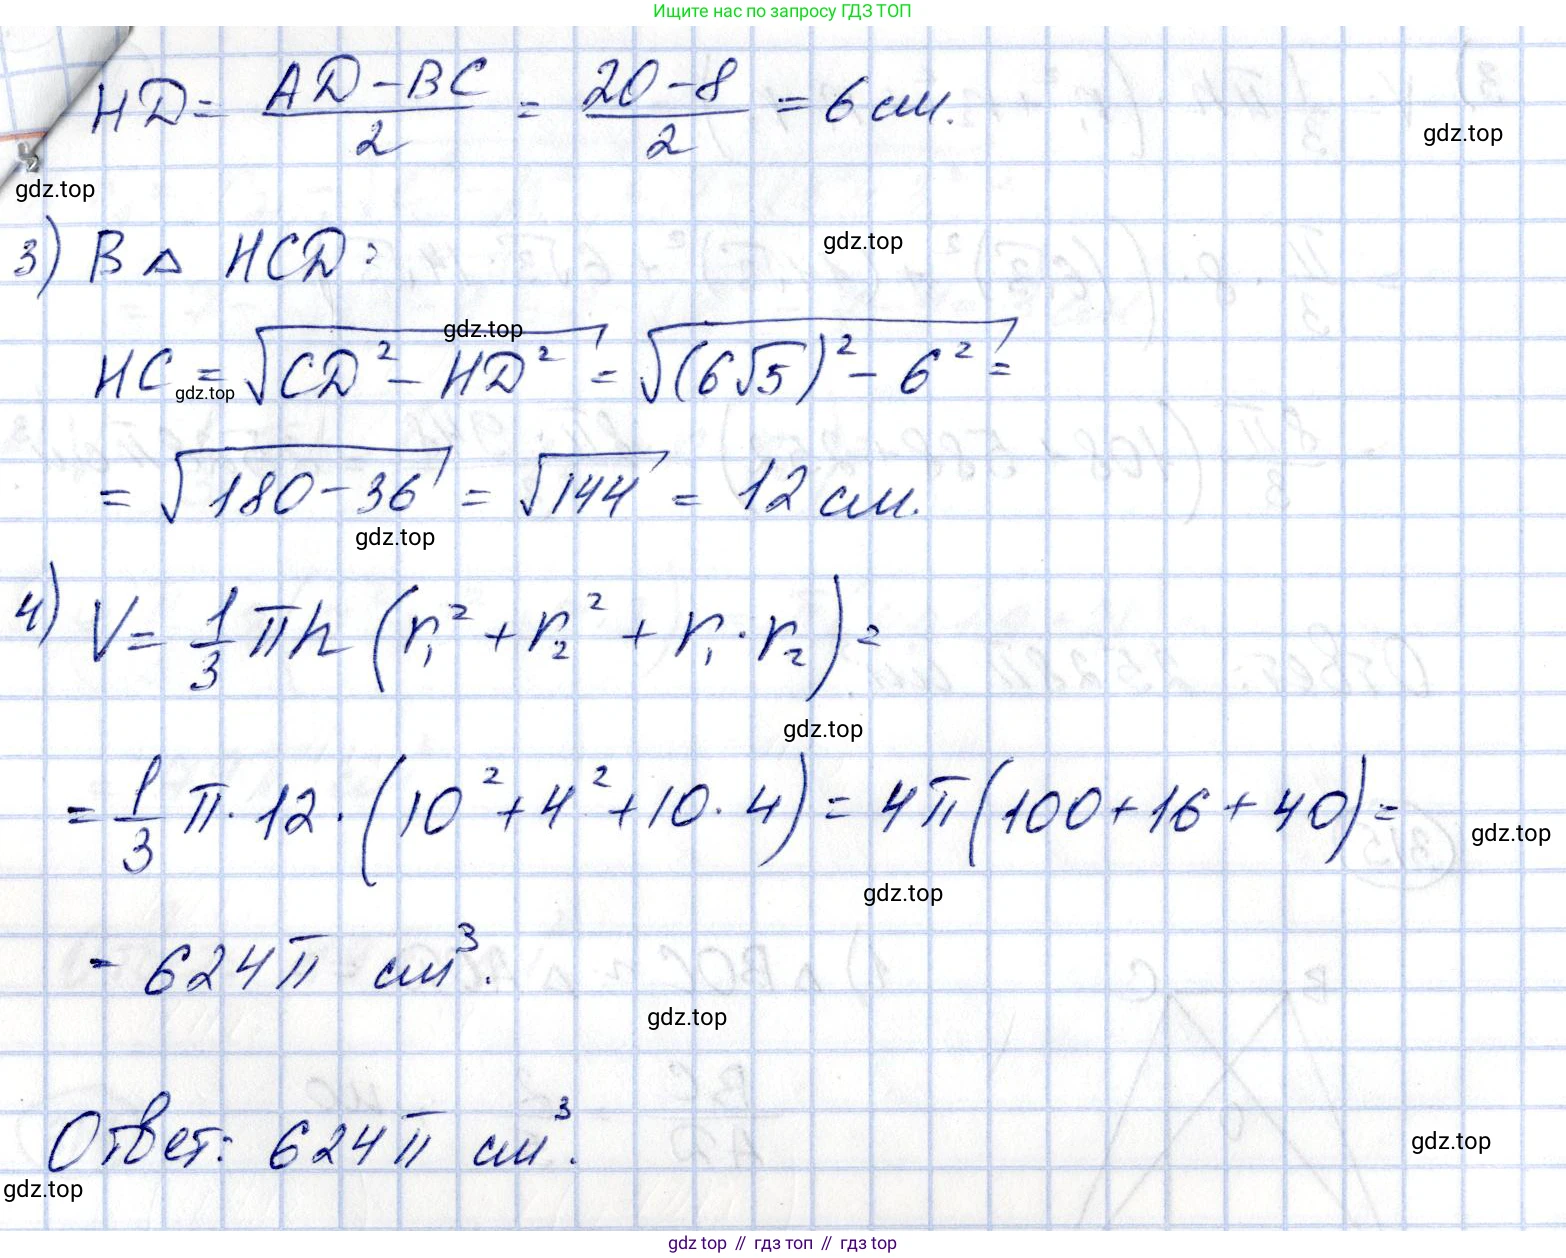 Ищите нас по запросу ГДЗ ТОП
HD = (AD - BC)/2 = (20 - 8)/2 = 6 см.
gdz.top
gdz.top
3) В △ HCD:
gdz.top
gdz.top
HC = √(CD² - HD²) = √((6√5)² - 6²) =
gdz.top
= √(180 - 36) = √144 = 12 см.
gdz.top
4) V = 1/3 πh (r₁² + r₂² + r₁ · r₂) =
gdz.top
= 1/3 π · 12 · (10² + 4² + 10 · 4) = 4π(100 + 16 + 40) =
gdz.top
gdz.top
= 624π см³.
gdz.top
Ответ: 624π см³.
gdz.top
gdz.top
gdz top // гдз топ // гдз top